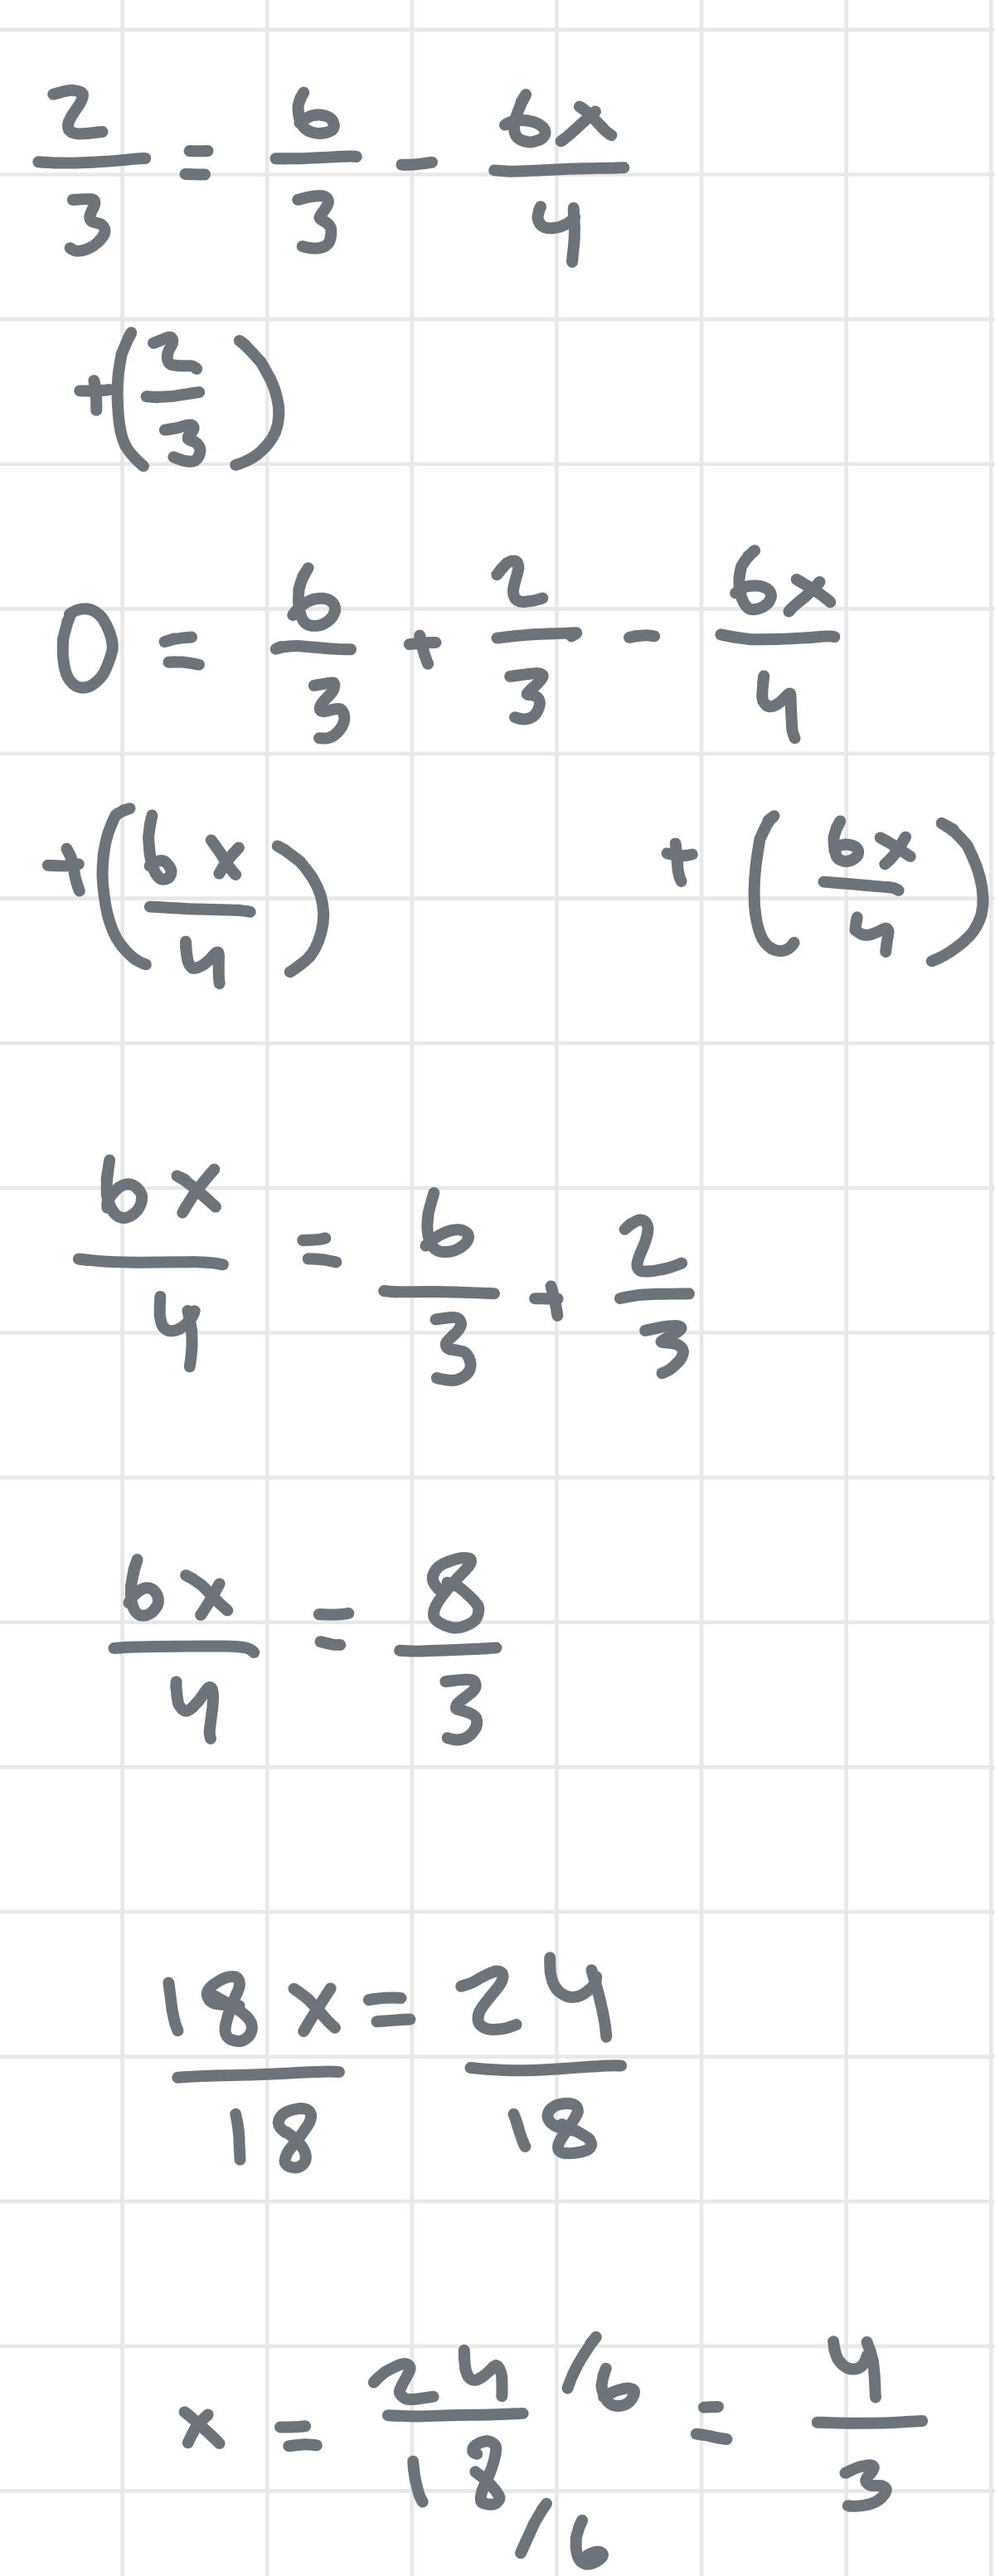 2/3 = 6/3 - 6x/4
+(2/3)
0 = 6/3 + 2/3 - 6x/4
+(6x/4) + (6x/4)
6x/4 = 6/3 + 2/3
6x/4 = 8/3
18x/18 = 24/18
x = 24/6 / 18/6 = 4/3